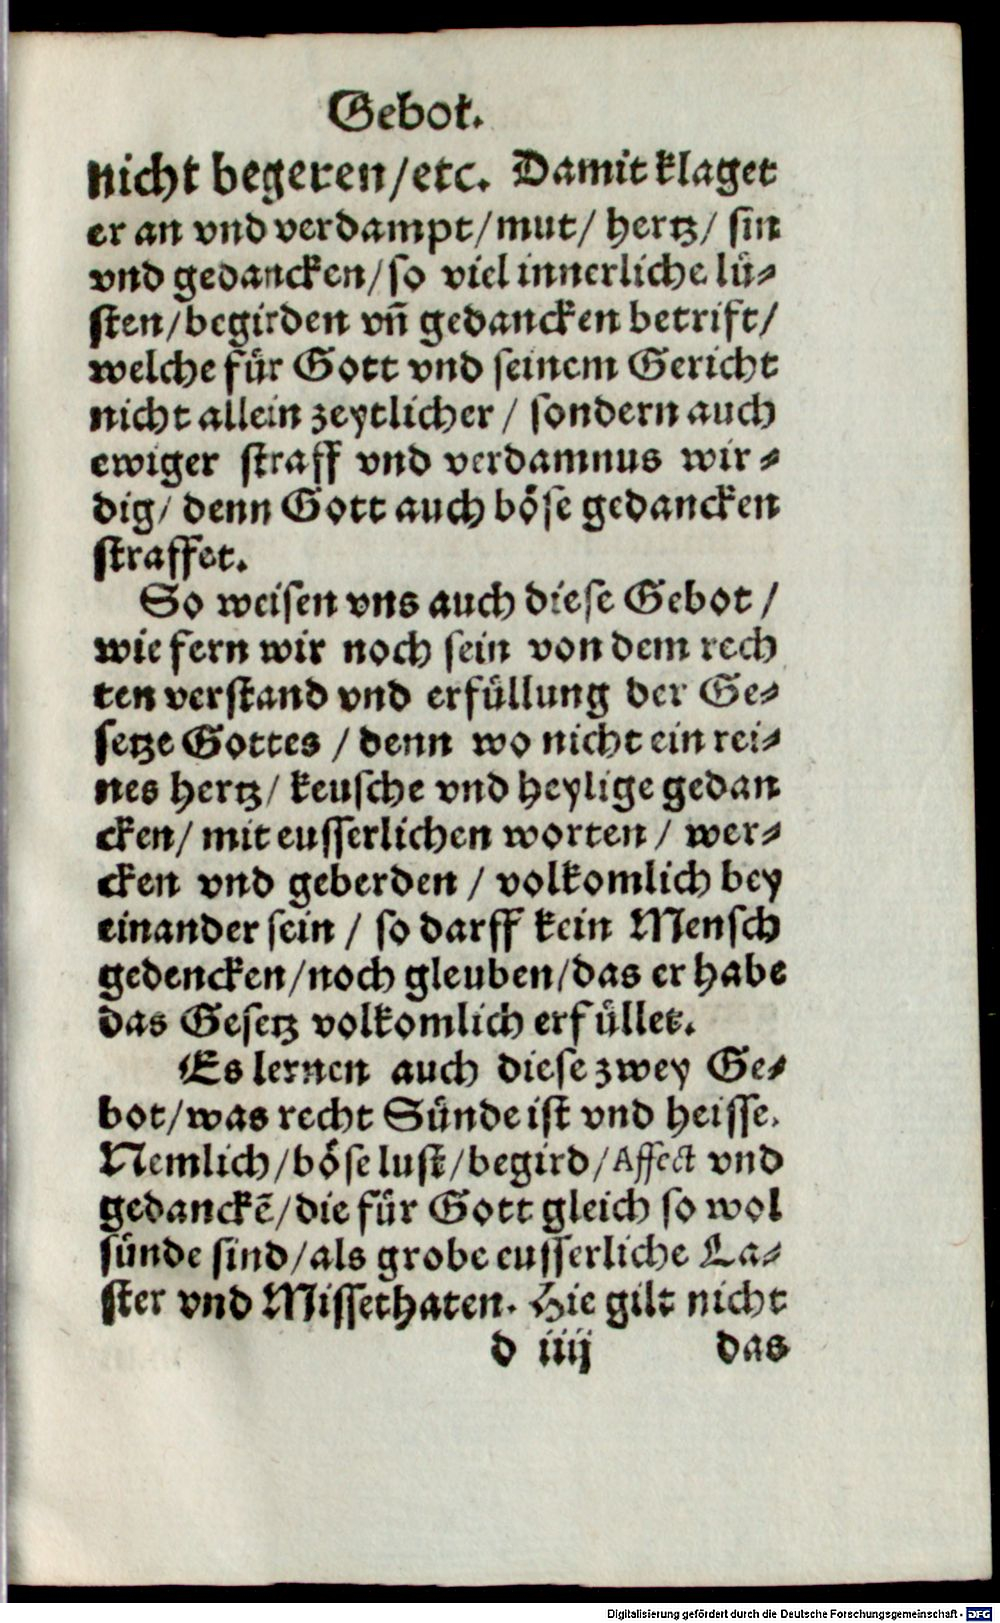 Gebot.
nicht begeren/etc. Damit klaget
er an vnd verdampt/mut/ hertz/ sin
vnd gedancken/so viel innerliche lü-
sten/begirden vñ gedancken betrift/
welche für Gott vnd seinem Gericht
nicht allein zeytlicher / sondern auch
ewiger straff vnd verdamnus wir-
dig/ denn Gott auch böse gedancken
straffet.
So weisen vns auch diese Gebot /
wie fern wir noch sein von dem rech
ten verstand vnd erfüllung der Ge-
setze Gottes / denn wo nicht ein rei-
nes hertz/ keusche vnd heylige gedan
cken/ mit eusserlichen worten / wer-
cken vnd geberden / volkomlich bey
einander sein / so darff kein Mensch
gedencken/noch gleuben/das er habe
das Gesetz volkomlich erfüllet.
Es lernen auch diese zwey Ge-
bot/was recht Sünde ist vnd heisse.
Nemlich/böse lust/begird/Affect vnd
gedanckẽ/die für Gott gleich so wol
sünde sind/als grobe eusserliche La-
ster vnd Missethaten. Hie gilt nicht
d iiij das
Digitalisierung gefördert durch die Deutsche Forschungsgemeinschaft - DFG